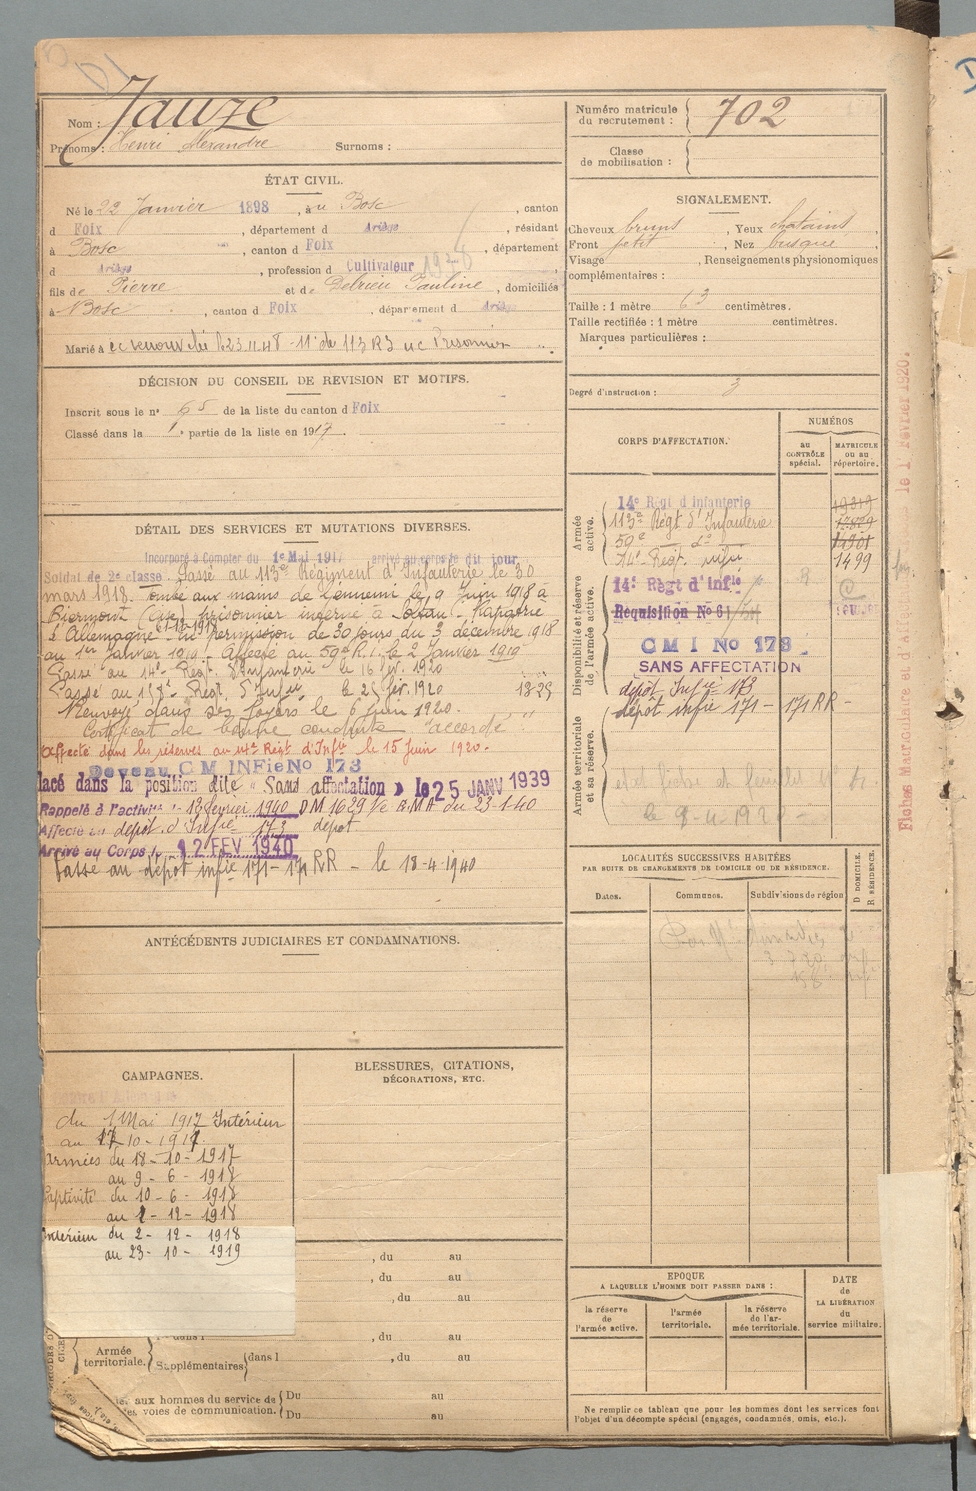 Nom : Jauze
Prénoms : Henri Alexandre Surnoms :
Numéro matricule du recrutement : 702
Classe de mobilisation :
ÉTAT CIVIL.
Né le 22 Janvier 1898, à u Bosc, canton
d Foix, département d Ariège, résidant
à Bosc, canton d Foix, département
d Ariège, profession d Cultivateur
fils de Pierre et de Debrieu Pauline, domiciliés
à Bosc, canton d Foix, département d Ariège
Marié à
SIGNALEMENT.
Cheveux bruns, Yeux chatains,
Front petit, Nez busqué,
Visage , Renseignements physionomiques
complémentaires :
Taille : 1 mètre 63 centimètres.
Taille rectifiée : 1 mètre centimètres.
Marques particulières :
Degré d'instruction : 3
DÉCISION DU CONSEIL DE REVISION ET MOTIFS.
Inscrit sous le n° 65 de la liste du canton d Foix
Classé dans la 1e partie de la liste en 1917.
CORPS D'AFFECTATION.
NUMÉROS
au CONTRÔLE spécial.
MATRICULE ou au répertoire.
Armée active.
14e Régt d'infanterie
113e Régt d'Infanterie
59e do
14e Régt
1499
Disponibilité et réserve de l'armée active.
14e Règt d'infie
Réquisition No 61
CMI No 173
SANS AFFECTATION
dépôt Infie 173
Armée territoriale et sa réserve.
dépôt infie 171 - 171 RR -
DÉTAIL DES SERVICES ET MUTATIONS DIVERSES.
Incorporé à Compter du 1e Mai 1917 arrivé au corps le dit jour,
Soldat de 2e classe. Passé au 113e Régiment d'Infanterie le 30
mars 1918. Tombé aux mains de l'ennemi le 9 Juin 1918 à
prisonnier interné à
En permission de 30 jours du 3 décembre 1918
au 1er Janvier 1919. Affecté au 59e R.I. le 2 Janvier 1919
Passé au 14e Régt d'Infanterie le 16 fév. 1920
Passé au Régt d'Infie le 25 fév. 1920
Renvoyé dans ses foyers le 6 juin 1920.
Certificat de bonne conduite "accordé"
Affecté dans les réserves au 14e Régt d'Infie le 15 Juin 1920.
Devenu CM INFie No 173
lacé dans la position dite « Sans affectation » le 25 JANV 1939
Rappelé à l'activité le 13 février 1940 DM 1629 du 23-1-40
Affecté au dépôt d'Infie 173 dépôt
Arrivé au Corps le 12 FEV 1940
Passé au dépôt infie 171 - 171 RR - le 18-4-1940
LOCALITÉS SUCCESSIVES HABITÉES
PAR SUITE DE CHANGEMENTS DE DOMICILE OU DE RÉSIDENCE.
Dates.
Communes.
Subdivisions de région
D DOMICILE.
R RÉSIDENCE.
ANTÉCÉDENTS JUDICIAIRES ET CONDAMNATIONS.
CAMPAGNES.
du 1 Mai 1917 Intérieur
au 17-10-1917.
Armées du 18-10-1917
au 9-6-1918
Captivité du 10-6-1918
au 1-12-1918
Intérieur du 2-12-1918
au 23-10-1919
BLESSURES, CITATIONS,
DÉCORATIONS, ETC.
, du au
, du au
, du au
, du au
Armée territoriale.
Supplémentaires dans l , du au
aux hommes du service de Du au
es voies de communication. Du au
ÉPOQUE
A LAQUELLE L'HOMME DOIT PASSER DANS :
la réserve de l'armée active.
l'armée territoriale.
la réserve de l'armée territoriale.
DATE de LA LIBÉRATION du service militaire.
Ne remplir ce tableau que pour les hommes dont les services font
l'objet d'un décompte spécial (engagés, condamnés, omis, etc.).